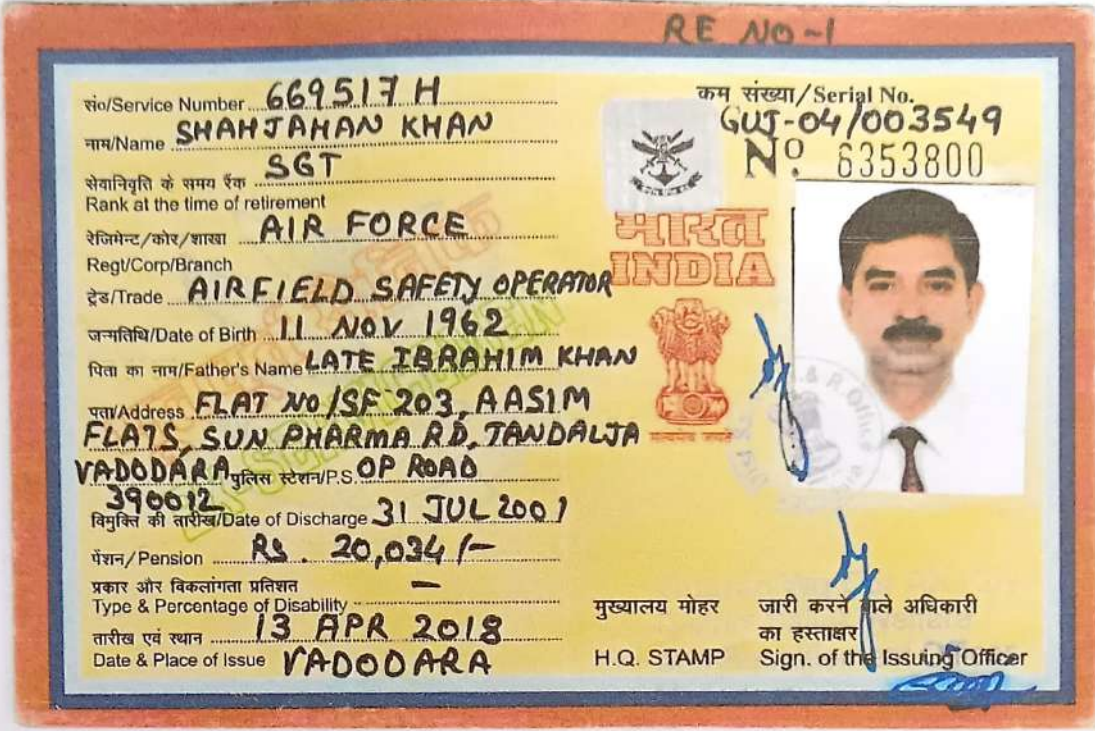 RE NO-1
सं०/Service Number 669517 H
कम संख्या/Serial No.
GUJ-04/003549
नाम/Name SHAHJAHAN KHAN
Nº 6353800
सेवानिवृति के समय रैंक SGT
Rank at the time of retirement
रेजिमेन्ट/कोर/शाखा AIR FORCE
Regt/Corp/Branch
भारत
INDIA
ट्रेड/Trade AIRFIELD SAFETY OPERATOR
जन्मतिथि/Date of Birth 11 NOV 1962
पिता का नाम/Father's Name LATE IBRAHIM KHAN
पता/Address FLAT NO/SF 203, AASIM
FLATS, SUN PHARMA RD, TANDALJA
VADODARA पुलिस स्टेशन/P.S. OP ROAD
390012
विमुक्ति की तारीख/Date of Discharge 31 JUL 2001
पेंशन/Pension RS. 20,034/-
प्रकार और विकलांगता प्रतिशत
Type & Percentage of Disability –
तारीख एवं स्थान 13 APR 2018
Date & Place of Issue VADODARA
मुख्यालय मोहर
H.Q. STAMP
जारी करने वाले अधिकारी
का हस्ताक्षर
Sign. of the Issuing Officer